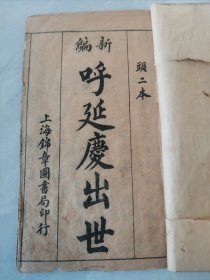 頭二本
新編
呼延慶出世
上海錦章圖書局印行